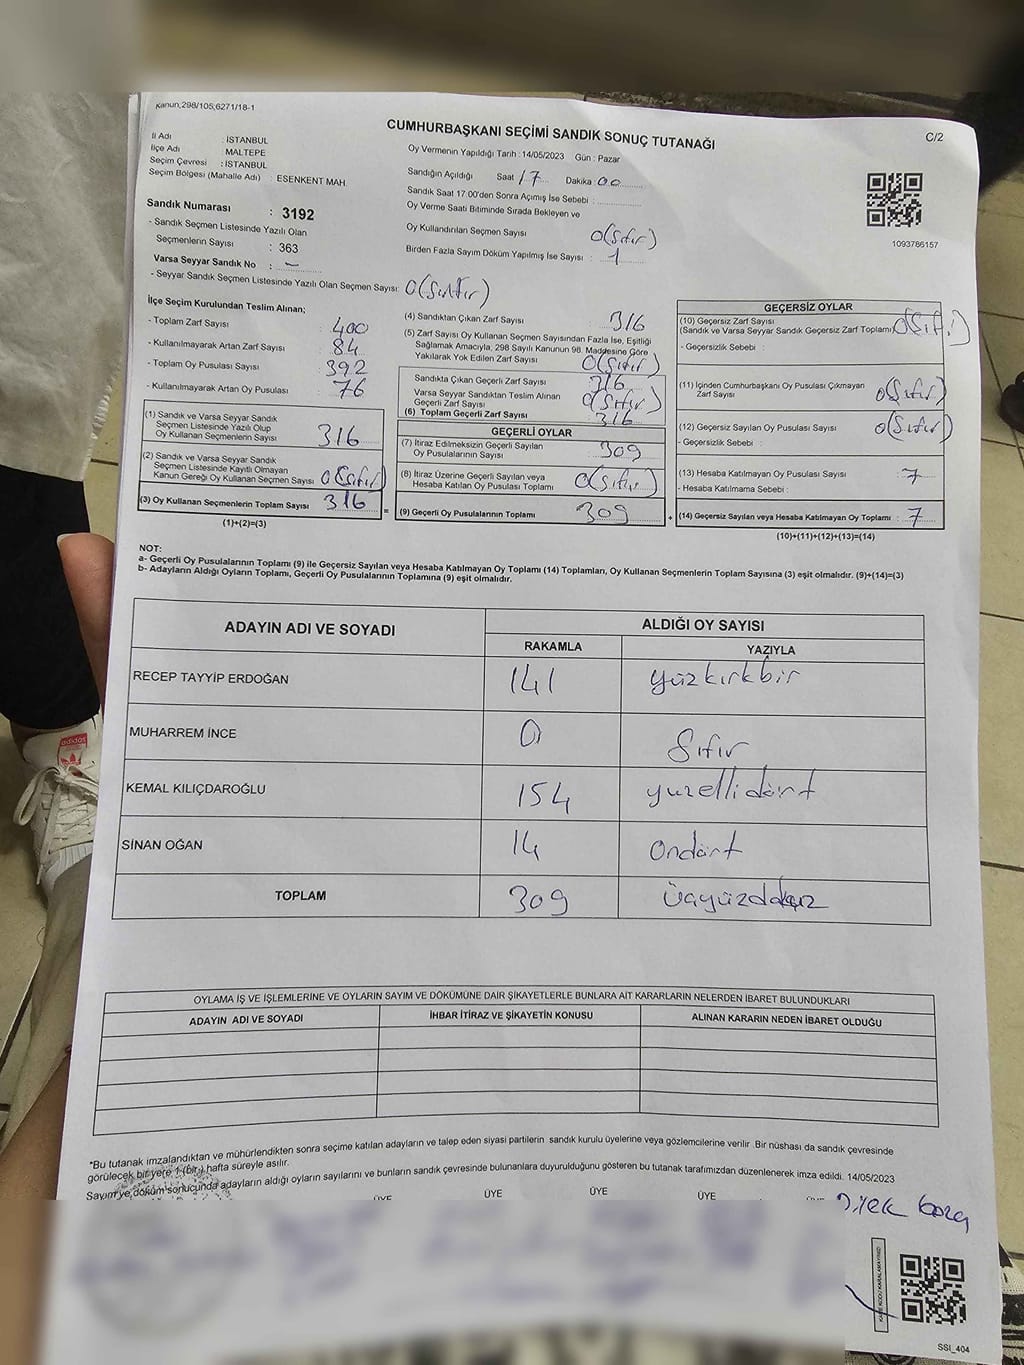 Kanun;298/105;6271/18-1
CUMHURBAŞKANI SEÇİMİ SANDIK SONUÇ TUTANAĞI
C/2
İl Adı : İSTANBUL
İlçe Adı : MALTEPE
Seçim Çevresi : İSTANBUL
Seçim Bölgesi (Mahalle Adı) : ESENKENT MAH.
Oy Vermenin Yapıldığı Tarih : 14/05/2023 Gün : Pazar
Sandığın Açıldığı Saat 17 Dakika 00
Sandık Saat 17:00'den Sonra Açımış İse Sebebi :
Oy Verme Saati Bitiminde Sırada Bekleyen ve
Oy Kullandırılan Seçmen Sayısı 0(Sıfır)
Birden Fazla Sayım Döküm Yapılmış İse Sayısı : 1
1093786157
Sandık Numarası : 3192
- Sandık Seçmen Listesinde Yazılı Olan
Seçmenlerin Sayısı : 363
Varsa Seyyar Sandık No : -
- Seyyar Sandık Seçmen Listesinde Yazılı Olan Seçmen Sayısı: 0(Sıfır)
İlçe Seçim Kurulundan Teslim Alınan;
- Toplam Zarf Sayısı : 400
- Kullanılmayarak Artan Zarf Sayısı : 84
- Toplam Oy Pusulası Sayısı : 392
- Kullanılmayarak Artan Oy Pusulası : 76
(1) Sandık ve Varsa Seyyar Sandık
Seçmen Listesinde Yazılı Olup
Oy Kullanan Seçmenlerin Sayısı 316
(2) Sandık ve Varsa Seyyar Sandık
Seçmen Listesinde Kayıtlı Olmayan
Kanun Gereği Oy Kullanan Seçmen Sayısı 0(Sıfır)
(3) Oy Kullanan Seçmenlerin Toplam Sayısı 316 =
(1)+(2)=(3)
(4) Sandıktan Çıkan Zarf Sayısı 316
(5) Zarf Sayısı Oy Kullanan Seçmen Sayısından Fazla İse, Eşitliği
Sağlamak Amacıyla, 298 Sayılı Kanunun 98. Maddesine Göre
Yakılarak Yok Edilen Zarf Sayısı 0(Sıfır)
Sandıkta Çıkan Geçerli Zarf Sayısı 316
Varsa Seyyar Sandıktan Teslim Alınan
Geçerli Zarf Sayısı 0(Sıfır)
(6) Toplam Geçerli Zarf Sayısı 316
GEÇERLİ OYLAR
(7) İtiraz Edilmeksizin Geçerli Sayılan
Oy Pusulalarının Sayısı 309
(8) İtiraz Üzerine Geçerli Sayılan veya
Hesaba Katılan Oy Pusulası Toplamı 0(Sıfır)
(9) Geçerli Oy Pusulalarının Toplamı 309 +
GEÇERSİZ OYLAR
(10) Geçersiz Zarf Sayısı
(Sandık ve Varsa Seyyar Sandık Geçersiz Zarf Toplamı) 0(Sıfır)
- Geçersizlik Sebebi :
(11) İçinden Cumhurbaşkanı Oy Pusulası Çıkmayan
Zarf Sayısı 0(Sıfır)
(12) Geçersiz Sayılan Oy Pusulası Sayısı 0(Sıfır)
- Geçersizlik Sebebi :
(13) Hesaba Katılmayan Oy Pusulası Sayısı 7
- Hesaba Katılmama Sebebi :
(14) Geçersiz Sayılan veya Hesaba Katılmayan Oy Toplamı : 7
(10)+(11)+(12)+(13)=(14)
NOT:
a- Geçerli Oy Pusulalarının Toplamı (9) ile Geçersiz Sayılan veya Hesaba Katılmayan Oy Toplamı (14) Toplamları, Oy Kullanan Seçmenlerin Toplam Sayısına (3) eşit olmalıdır. (9)+(14)=(3)
b- Adayların Aldığı Oyların Toplamı, Geçerli Oy Pusulalarının Toplamına (9) eşit olmalıdır.
ADAYIN ADI VE SOYADI
ALDIĞI OY SAYISI
RAKAMLA YAZIYLA
RECEP TAYYİP ERDOĞAN 141 yüzkırkbir
MUHARREM İNCE 0 Sıfır
KEMAL KILIÇDAROĞLU 154 yüzellidört
SİNAN OĞAN 14 Ondört
TOPLAM 309
OYLAMA İŞ VE İŞLEMLERİNE VE OYLARIN SAYIM VE DÖKÜMÜNE DAİR ŞİKAYETLERLE BUNLARA AİT KARARLARIN NELERDEN İBARET BULUNDUKLARI
ADAYIN ADI VE SOYADI İHBAR İTİRAZ VE ŞİKAYETİN KONUSU ALINAN KARARIN NEDEN İBARET OLDUĞU
*Bu tutanak imzalandıktan ve mühürlendikten sonra seçime katılan adayların ve talep eden siyasi partilerin sandık kurulu üyelerine veya gözlemcilerine verilir. Bir nüshası da sandık çevresinde
görülecek bir yere 1 (bir) hafta süreyle asılır.
Sayım ve döküm sonucunda adayların aldığı oyların sayılarını ve bunların sandık çevresinde bulunanlara duyurulduğunu gösteren bu tutanak tarafımızdan düzenlenerek imza edildi. 14/05/2023
ÜYE ÜYE ÜYE ÜYE
SSI_404